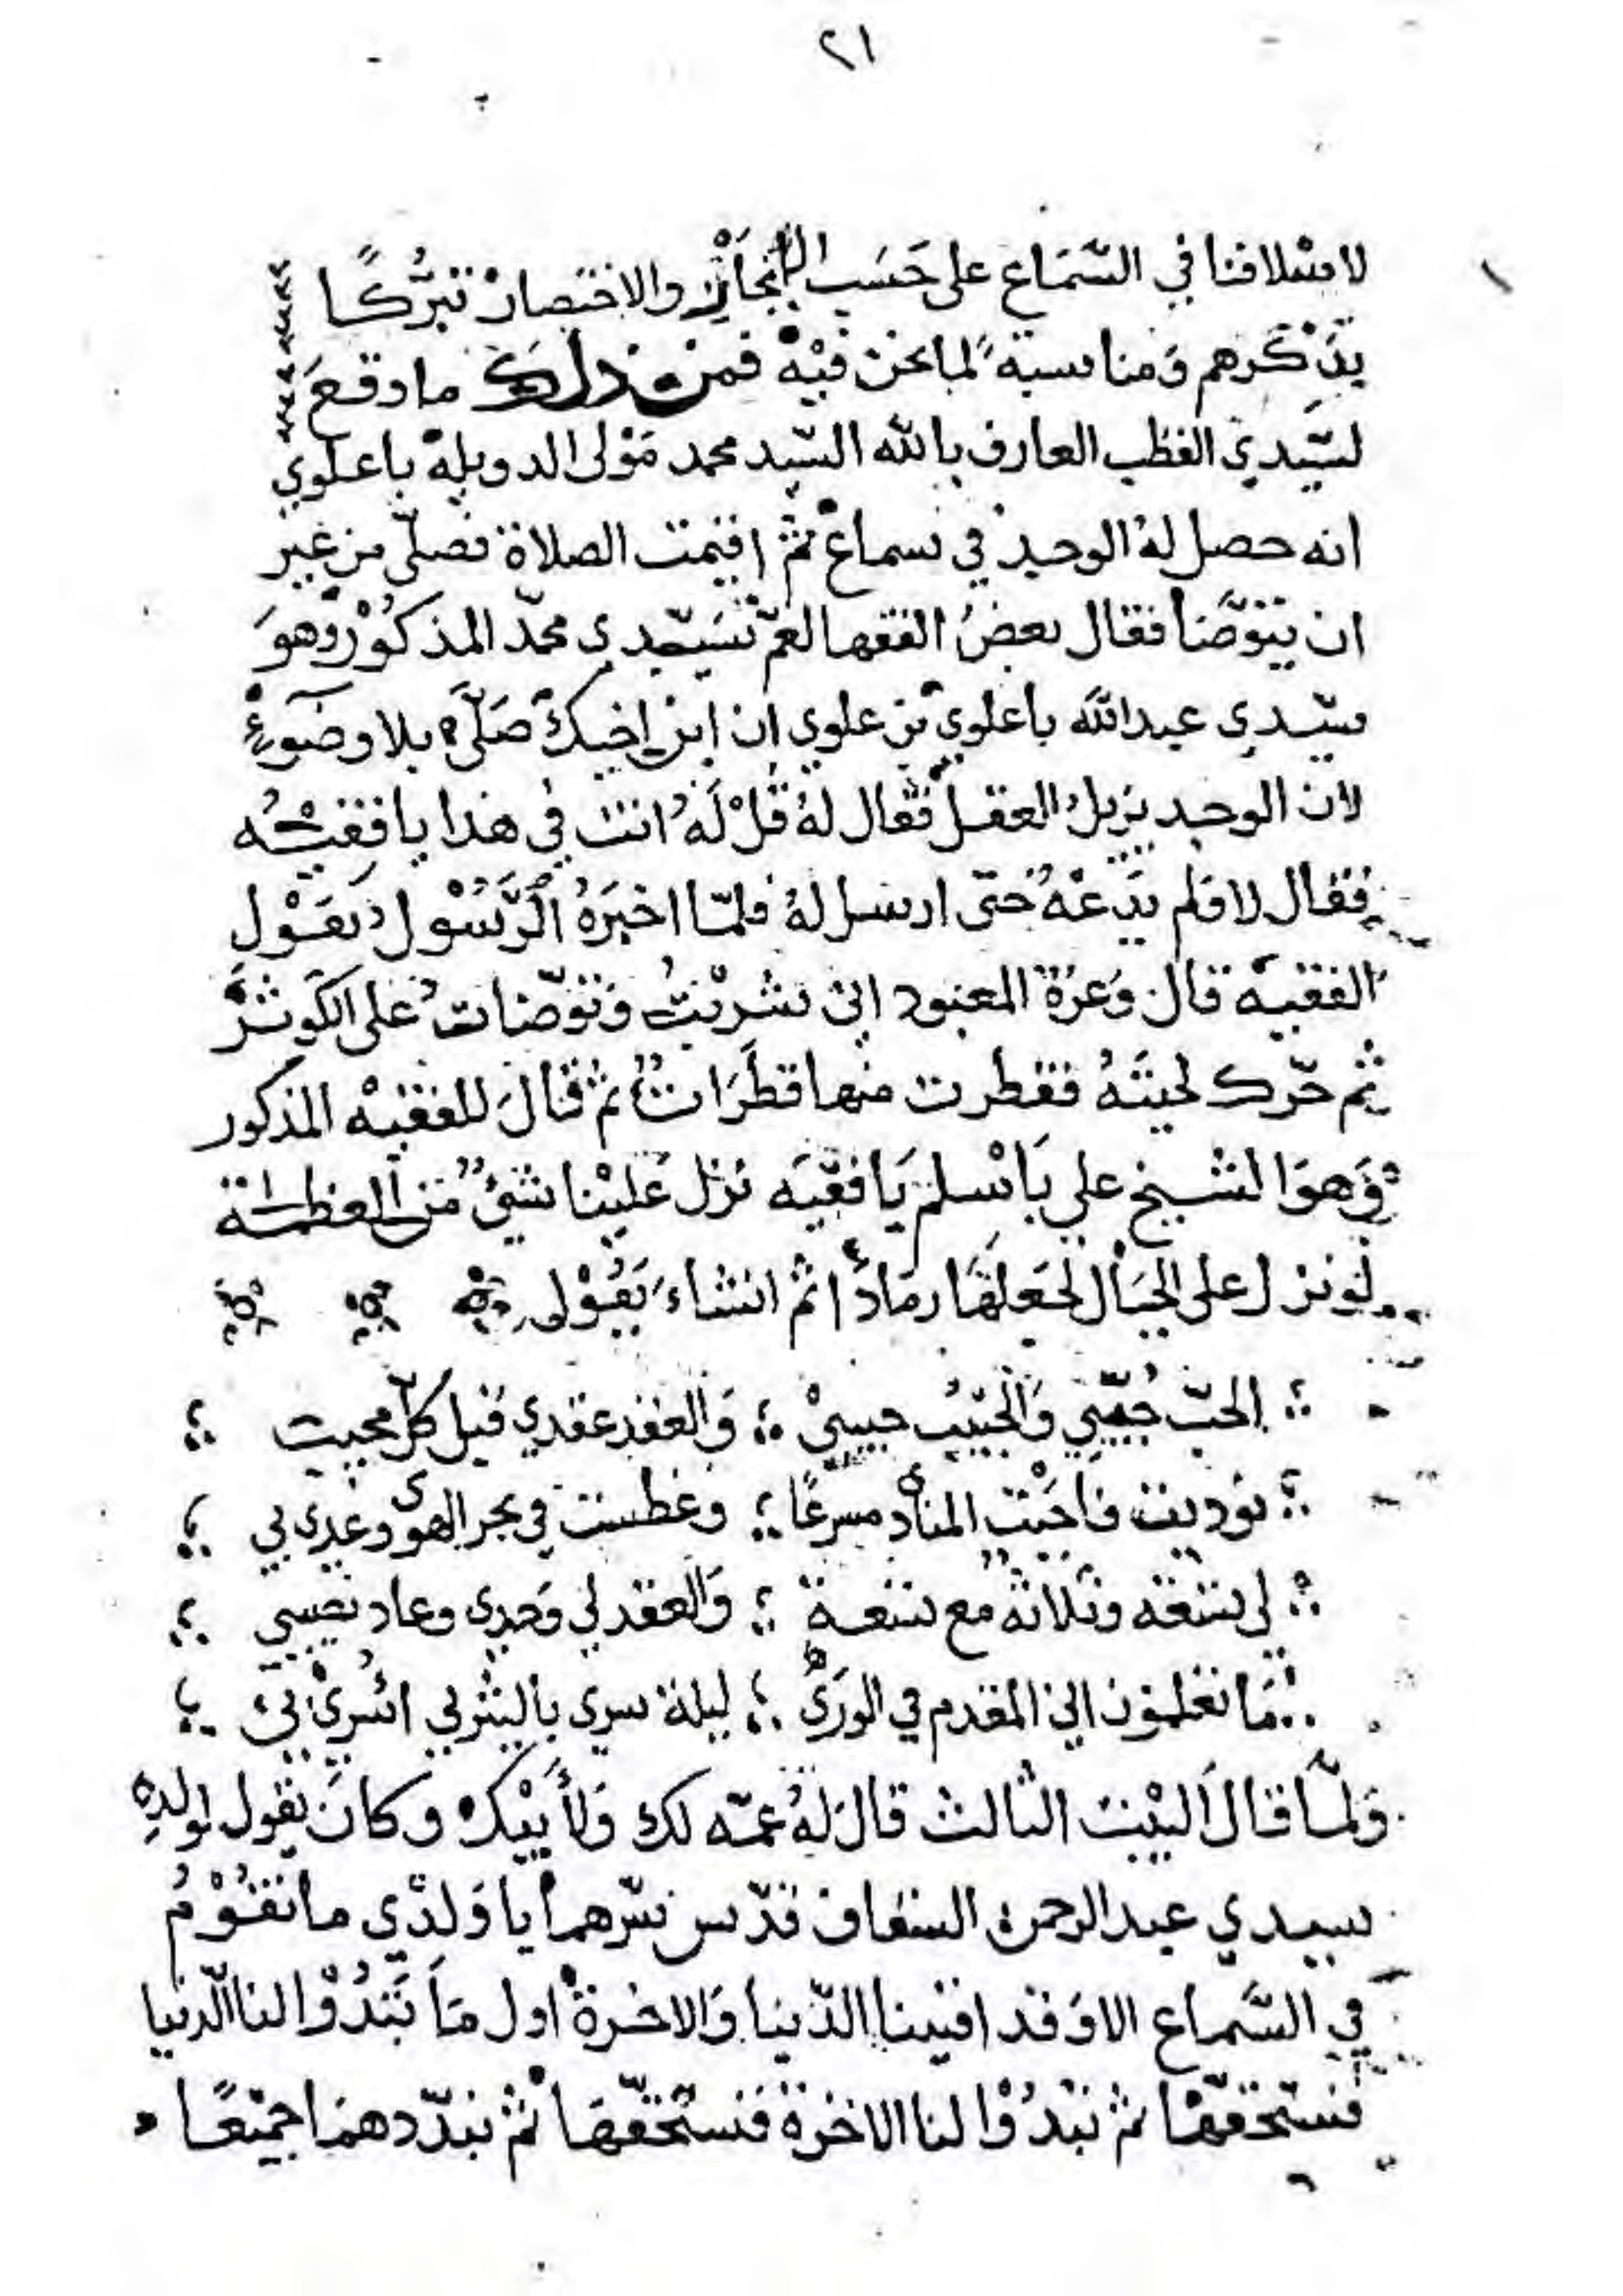 ٢١
لاسلافنا في السّمَاع على حَسَب الإيجاز والاختصار تبرُّكًا
بذكرهم ومناسبة لما نحن فيه فمن ذلك ما وقع
لسَيّدي القطب العارف بالله السّيد محمد مَوْلى الدويله باعلوي
انه حصل لهُ الوجد في سماع ثمّ اقيمت الصلاة فصلّى من غير
ان يتوضّأ فقال بعضُ الفقها لعمّ سَيّدي محمّد المذكوْر وهوَ
سيّدي عبدالله باعلوي بن علوي ان ابن اخيك صَلّى بلا وضوءٍ
لان الوجد يزيل العقل فقال لهُ قُلْ لَهُ انت في هذا يا فقيه
فقال لا فلم يدَعْهُ حتّى ارسل لهُ فلمّا اخبَرَهُ الرَّسُوْل بقَوْل
الفقيه قال وَعزة المعبود اني شربتُ وتوضّات على الكَوثر
ثم حرّك لحيتَهُ فقطرت منها قطَرَاتٌ ثم قالَ للفقيهْ المذكور
وَهوَ الشيخ علي بَاسْلم يَا فقيَه نزل عَليْنا شيْءٌ من العظمة
لو نزل على الجبَال لجعَلهَا رمَادًا ثمّ انشاءَ يَقُوْل
الحبّ حُبّي وَالحَبيْبُ حبيبيْ وَالعقد عقدي قبل كلّ محبب
نوديت فاجَبْت المنادى مسرعًا وغطست في بحر الهوى وغدى بي
لي تسْعَة وثلاثةٌ مع تسْعة وَالعقد لي وَحدى وعاد نصيبي
مَا تعْلمُوْن اني المقدم في الورَىْ ليلة سرى باليثربي اسْرىْ بيْ
وَلمّا قال البيْت الثالث قال لهُ عمّه لك وَلأَبيْك وكانَ يقول لولدِهِ
سيدي عبدالرحمن السقاف قدّس سرّهما يا وَلدْي ما نقُوْمُ
في السَّماع الا وَقد افنينا الدّنيا وَالاخرة اول مَا تَبْدُوْا لنا الّدنيا
فنستحقّهْا ثم تبْدُوْا لنا الاخرة فنستحقّهَا ثمّ نبدّدهمَا جميْعًا